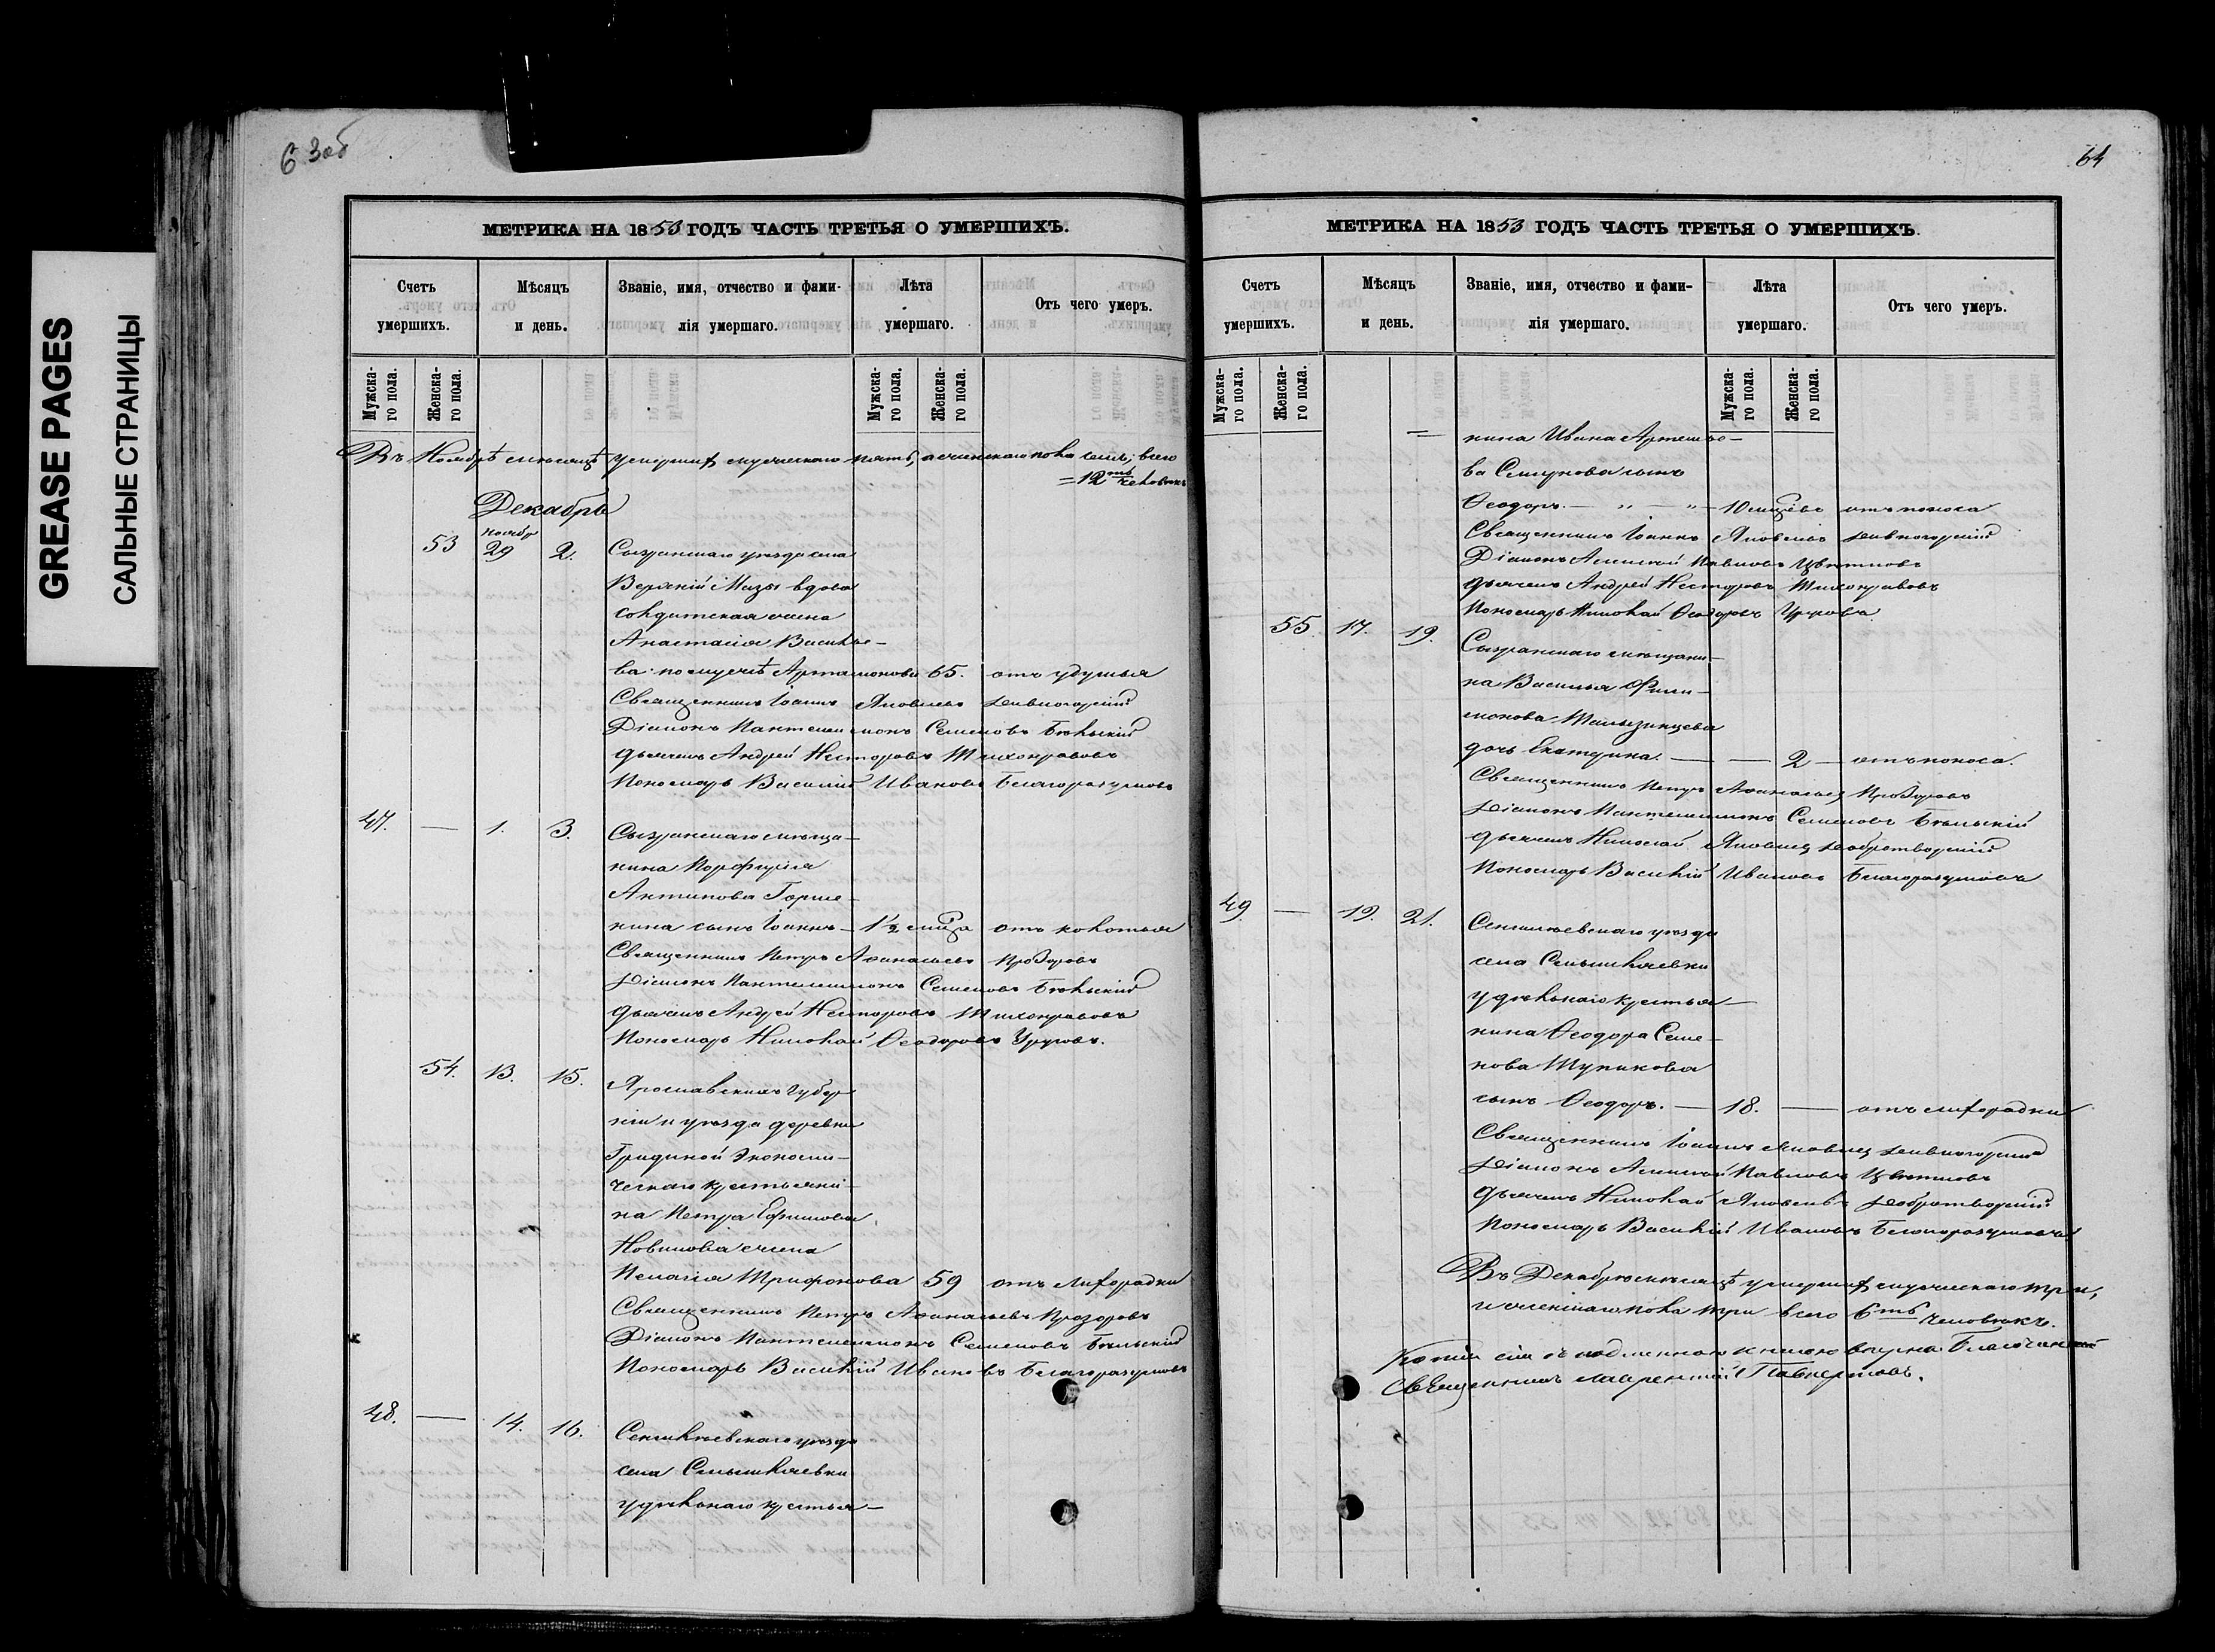 GREASE PAGES
САЛЬНЫЕ СТРАНИЦЫ
63об
МЕТРИКА НА 1853 ГОДЪ ЧАСТЬ ТРЕТЬЯ О УМЕРШИХЪ.
Счетъ умершихъ.
Мѣсяцъ и день.
Званіе, имя, отчество и фами-
лія умершаго.
Лѣта умершаго.
Отъ чего умеръ.
Мужска-
го пола.
Женска-
го пола.
Мужска-
го пола.
Женска-
го пола.
Въ Ноябрѣ мѣсяцѣ умершихъ мужескаго пять, а женскаго пола семь, всего
=12ть человѣкъ
Декабрь
Ноябр
53 29 2. Сызранскаго уѣзда села
Верхній Мазы вдова
солдатская жена
Анастасія Василье-
ва по мужѣ Артамонова 65. отъ удушья
Священникъ Іоаннъ Яковлевъ Дивногорскій
Діаконъ Пантелеимонъ Семеновъ Бѣльскій
Дьячекъ Андрей Несторовъ Тихонравовъ
Пономарь Василій Ивановъ Благоразумовъ
47. — 1. 3. Сызранскаго мѣща-
нина Порфирія
Антипова Горше-
нина сынъ Іоаннъ — 1½ мца отъ колотья
Священникъ Петръ Афанасьевъ Прозоровъ
Діаконъ Пантелеимонъ Семеновъ Бѣльскій
Дьячекъ Андрей Несторовъ Тихонравовъ
Пономарь Николай Ѳеодоровъ
54. 13. 15. Ярославской Губер
ніи и уѣзда деревни
Гридиной Экономи-
ческаго крестьяни-
на Петра Ефимова
Новикова жена
Пелагія Трифонова 59 отъ лихорадки
Священникъ Петръ Афанасьевъ Прозоровъ
Діаконъ Пантелеимонъ Семеновъ Бѣльскій
Пономарь Василій Ивановъ Благоразумовъ
48. — 14. 16. Сенгилѣевскаго уѣзда
села Смышляевки
удѣльнаго крестья-
64
МЕТРИКА НА 1853 ГОДЪ ЧАСТЬ ТРЕТЬЯ О УМЕРШИХЪ.
Счетъ умершихъ.
Мѣсяцъ и день.
Званіе, имя, отчество и фами-
лія умершаго.
Лѣта умершаго.
Отъ чего умеръ.
Мужска-
го пола.
Женска-
го пола.
Мужска-
го пола.
Женска-
го пола.
= нина Ивана Артемье-
ва сынъ
Ѳеодоръ — „ — „ — 10 отъ поноса
Священникъ Іоаннъ Яковлевъ Дивногорскій
Діаконъ Алексѣй Павловъ Цвѣтковъ
Дьячекъ Андрей Несторовъ Тихонравовъ
Пономарь Николай Ѳеодоровъ
55. 17. 19. Сызранскаго мѣщани-
на Василья Фили-
монова
дочь Екатерина. — — 2 — отъ поноса.
Священникъ Петръ Афанасьевъ Прозоровъ
Діаконъ Пантелеимонъ Семеновъ Бѣльскій
Дьячекъ Николай Яковлевъ Добротворскій
Пономарь Василій Ивановъ Благоразумовъ
49. — 19. 21. Сенгилѣевскаго уѣзда
села Смышляевки
удѣльнаго крестья-
нина Ѳеодора Семе-
нова Шупикова
сынъ Ѳеодоръ. — 18. — отъ лихорадки
Священникъ Іоаннъ Яковлевъ Дивногорскій
Діаконъ Алексѣй Павловъ Цвѣтковъ
Дьячекъ Николай Яковлевъ Добротворскій
Пономарь Василій Ивановъ Благоразумовъ
Въ Декабрѣ мѣсяцѣ умершихъ мужескаго три,
и женскаго пола три всего 6ть человѣкъ.
Копія сія съ подлинною книгою вѣрна Благочинный
Священникъ Лаврентій